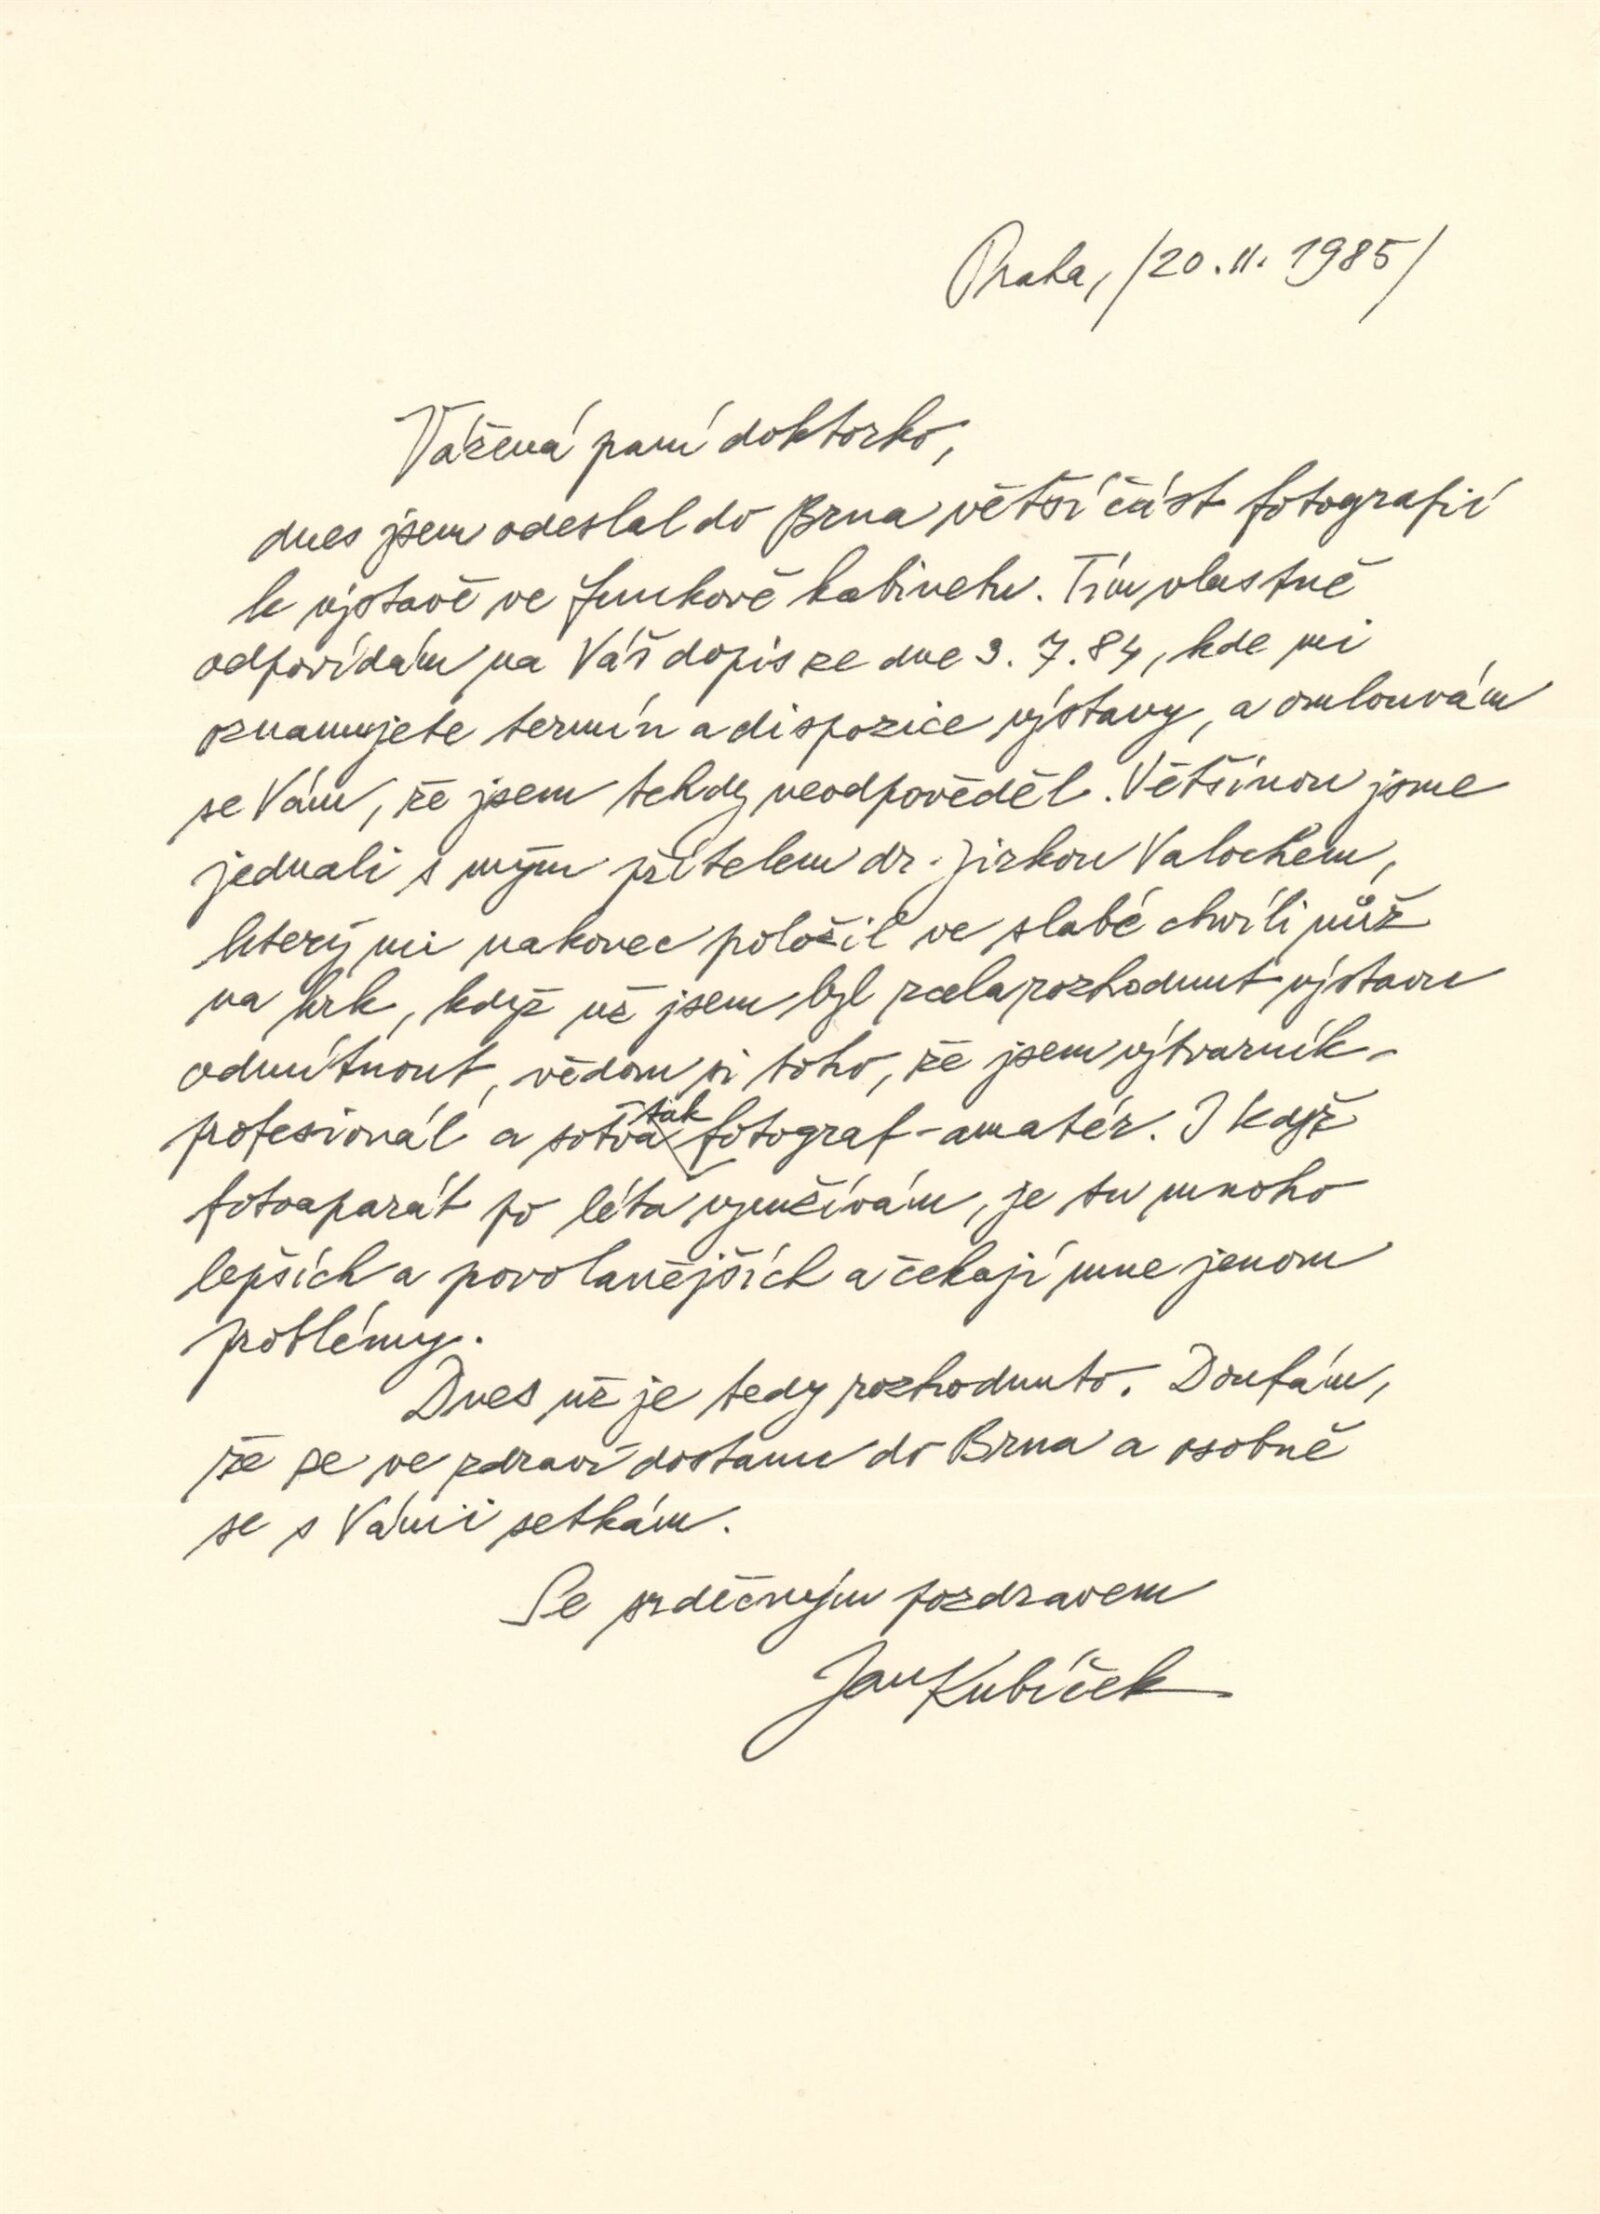 Praha, /20. 11. 1985/
Vážená paní doktorko,
dnes jsem odeslal do Brna větší část fotografií
k výstavě ve Funkově kabinetu. Tím vlastně
odpovídám na Váš dopis ze dne 3. 7. 84, kde mi
oznamujete termín a dispozice výstavy, a omlouvám
se Vám, že jsem tehdy neodpověděl. Většinou jsme
jednali s mým přítelem dr. Jirkou Valochem,
který mi nakonec položil ve slabé chvíli nůž
na krk, když už jsem byl zcela rozhodnut výstavu
odmítnout, vědom si toho, že jsem výtvarník-
profesionál a sotva tak fotograf-amatér. I když
fotoaparát po léta využívám, je tu mnoho
lepších a povolanějších a čekají mne jenom
problémy.
Dnes už je tedy rozhodnuto. Doufám,
že se ve zdraví dostanu do Brna a osobně
se s Vámi setkám.
Se srdečným pozdravem
Jan Kubíček